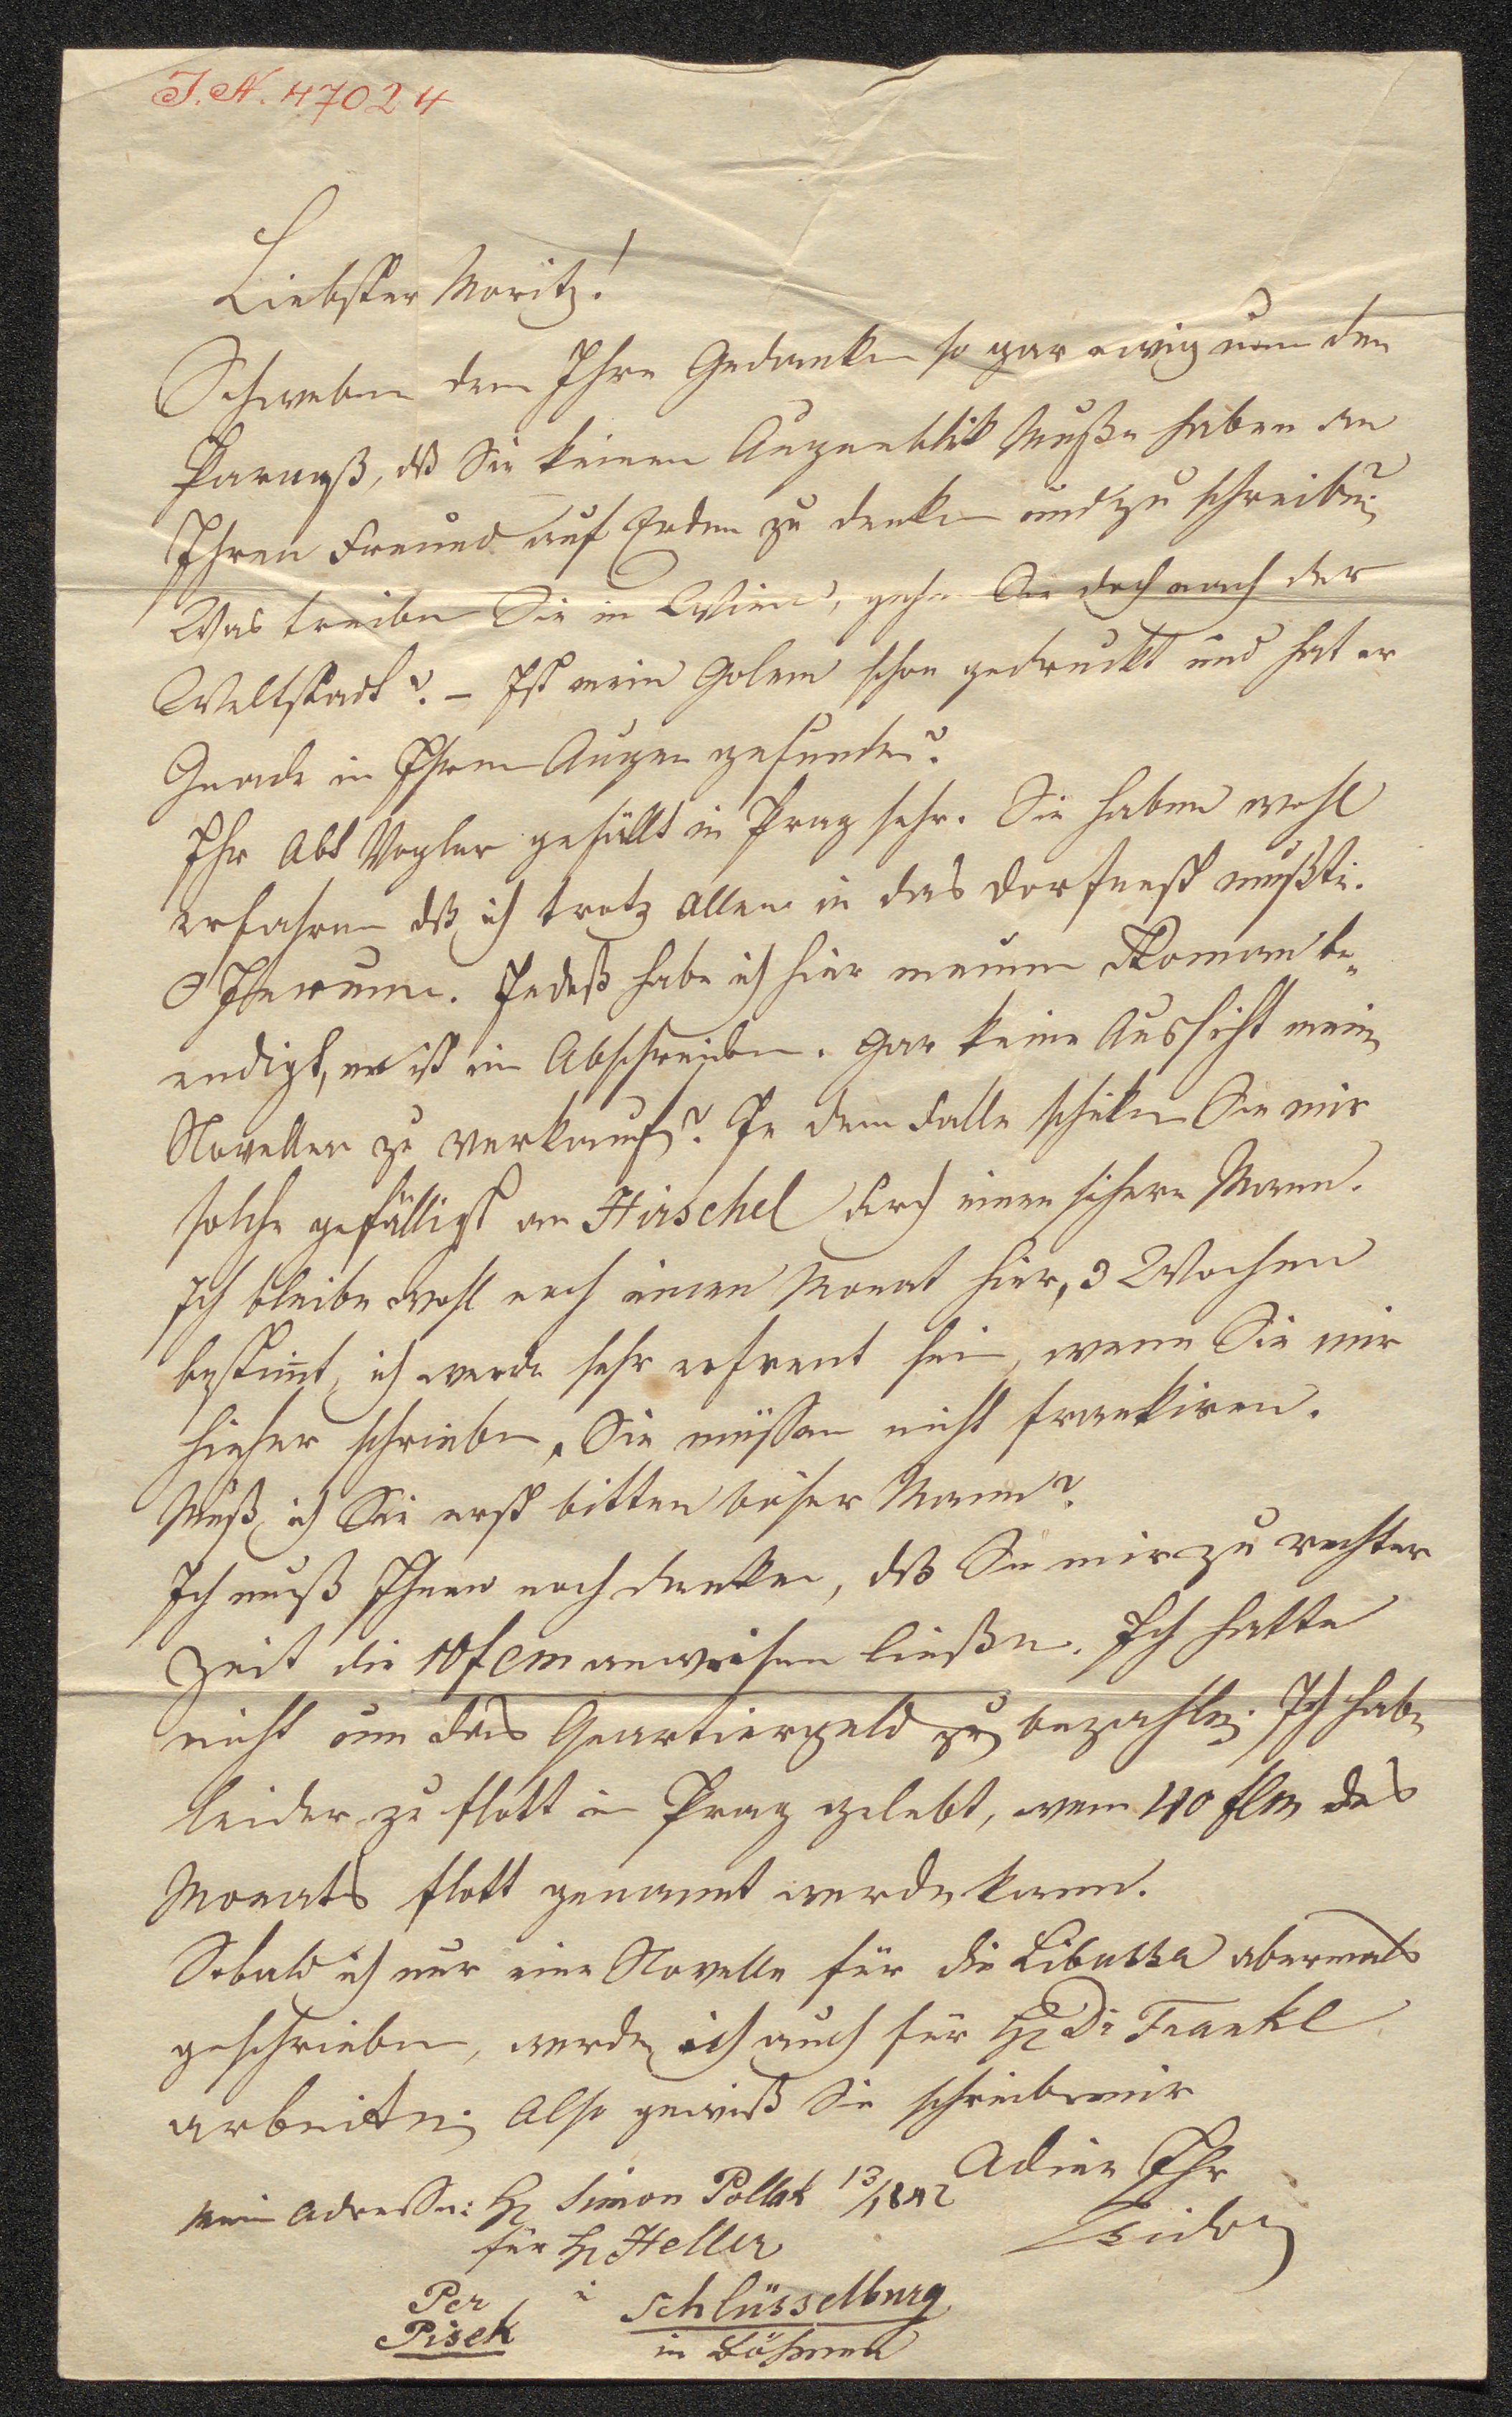 I. N. 47024
Liebster Moritz!
Schweben den Ihre Gedanken so gar ewig um den
Parnaß, dß Sie keinen Augenblik Muße haben an
Ihren Freund auf Erden zu denken und zu schreiben?
Was treiben Sie in Wien, gehn Sie doch nach der
Weltstadt? – Ist mein Golem schon gedruckt und hat er
Gnade in Ihren Augen gefunden?
Ihr Abt Vogler gefällt in Prag sehr. Sie haben wohl
erfahren dß ich trotz allem in das Dorfnest mußte.
O Jerum. Indeß habe ich hier meinen Roman be„
endigt, er ist im Abschreiben. Gar keine Aussicht meine
Novellen zu verkaufen? In dem Falle schiken Sie mir
solche gefälligst an Hirschel durch einen sichern Mann.
Ich bleibe wohl noch einen Monat hier, 3 Wochen
bestimt, ich werde sehr erfreut sein, wenn Sie mir
hieher schreiben, Sie müssen nicht frankiren.
Muß ich Sie erst bitten böser Mann?
Ich muß Ihnen noch danken, dß Sie mir zu rechter
Zeit die 10 f CM anweisen ließen. Ich hatte
nicht um das Quartiergeld zu bezahlen. Ich habe
leider zu flott in Prag gelebt, wenn 40 fCm des
Monats flott genannt werden kann.
Sobald ich nur eine Novelle für die Libussa abermals
geschrieben, werde ich auch für H Dr Frankl
arbeiten. Also gewiß Sie schreiben mir
Adieu Ihr
Mein Adresse: H Simon Pollak 13/1842
für H Heller Isidor
Per i Schlüsselburg
Pisek in Böhmen